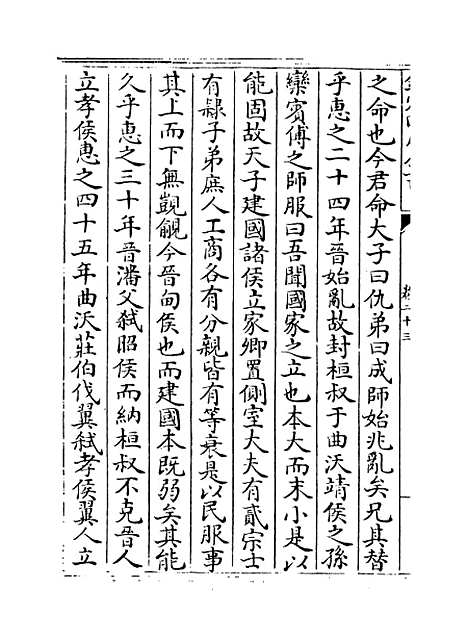 之命也今君命大子曰仇弟曰成師始兆亂矣兄其替
乎惠之二十四年晉始亂故封桓叔于曲沃靖侯之孫
欒賓傅之師服曰吾聞國家之立也本大而末小是以
能固故天子建國諸侯立家卿置側室大夫有貳宗士
有隸子弟庶人工商各有分親皆有等衰是以民服事
其上而下無覬覦今晉甸侯也而建國本既弱矣其能
久乎惠之三十年晉潘父弒昭侯而納桓叔不克晉人
立孝侯惠之四十五年曲沃莊伯伐翼弒孝侯翼人立